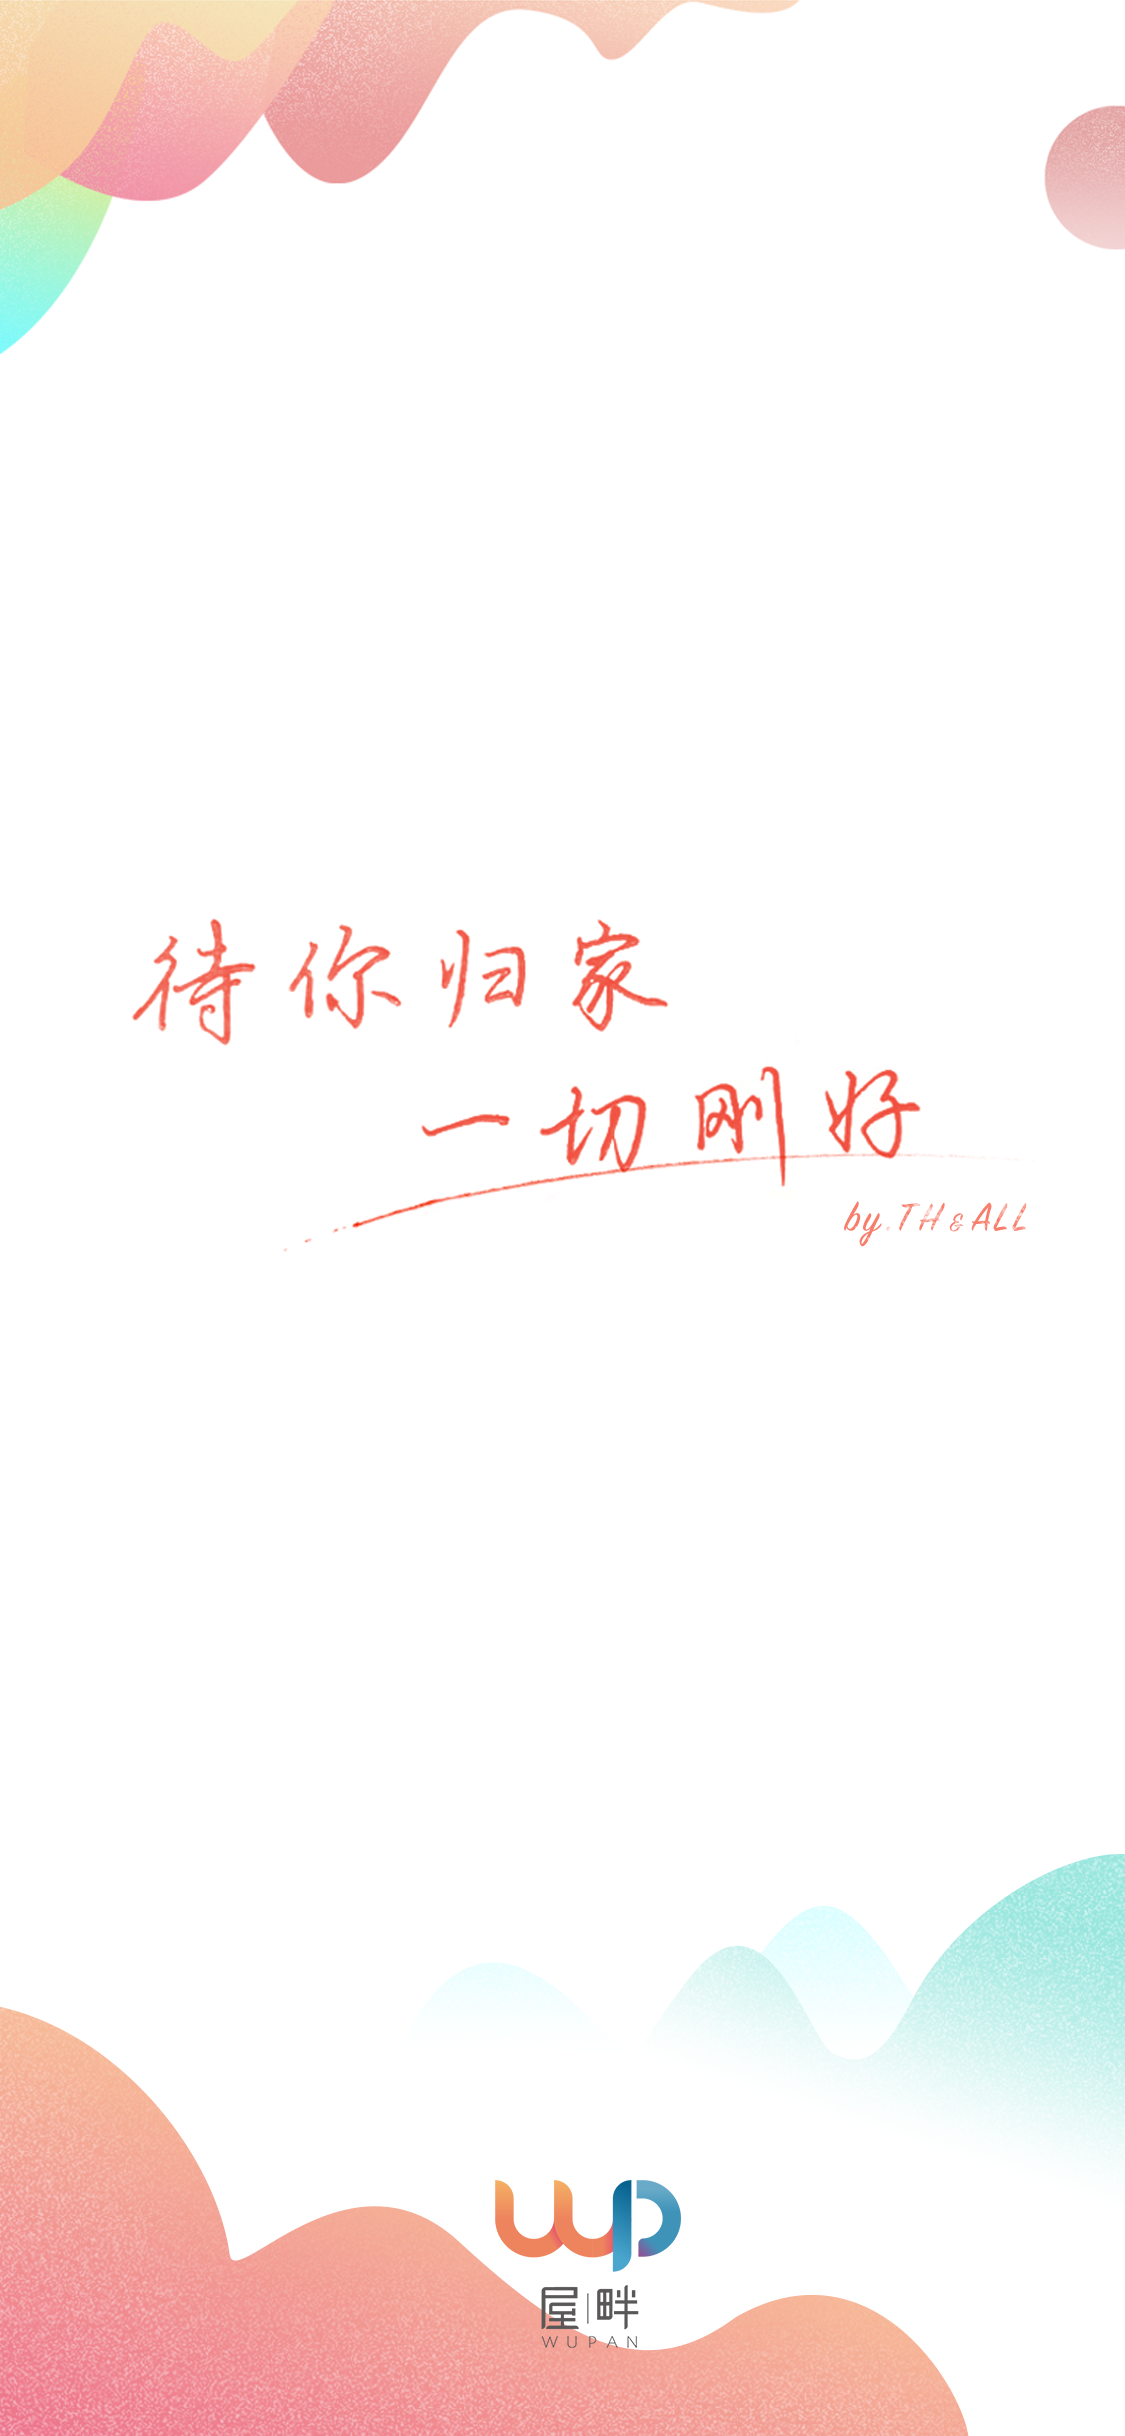 待你归家
一切刚好
by.TH&ALL
wp
屋|畔
WUPAN